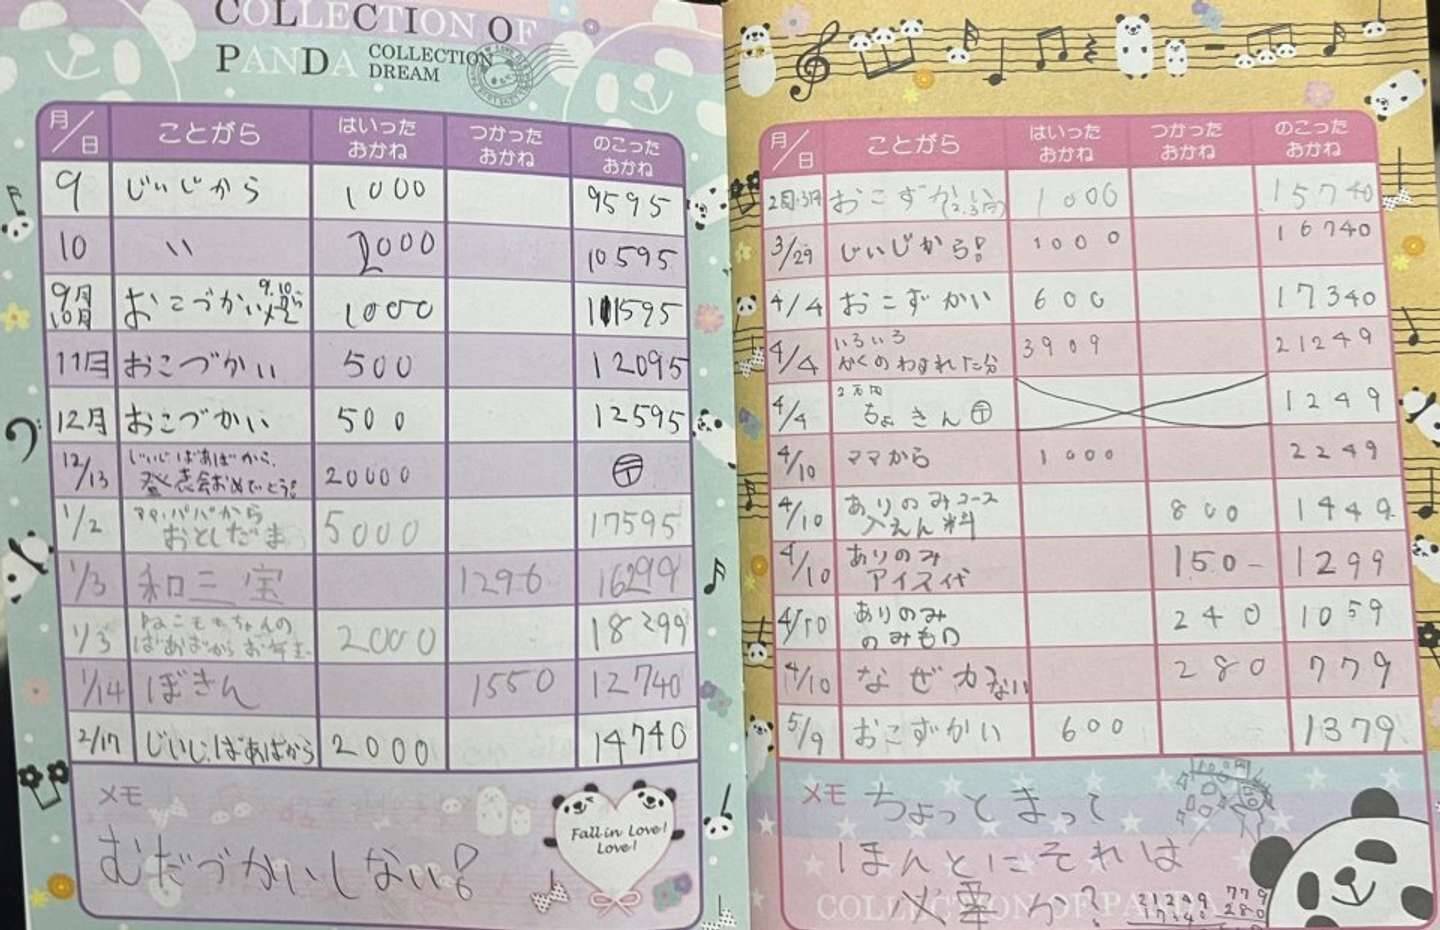 COLLECTION OF
PANDA COLLECTION DREAM
月/日 ことがら はいったおかね つかったおかね のこったおかね
9 じぃじから 1000 9595
10 〃 2000 10595
9月10月 おこづかい 9.10 1000 11595
11月 おこづかい 500 12095
12月 おこづかい 500 12595
12/13 じいじばあばから、発表会おめでとう! 20000 〒
1/2 ママ.パパから おとしだま 5000 17595
1/3 和三宝 1296 16299
1/3 ちゃんの ばあばから お年玉 2000 18299
1/14 ぼきん 1550 12740
2/17 じいじ.ばあばから 2000 14740
メモ
むだづかいしない!
Fall in Love!
Love!
月/日 ことがら はいったおかね つかったおかね のこったおかね
2月・3月 おこずかい (2.3月) 1000 15740
3/29 じぃじから! 1000 16740
4/4 おこずかい 600 17340
4/4 いろいろ かくのわすれた分 3909 21249
4/4 2万円 ちょきん 〒 1249
4/10 ママから 1000 2249
4/10 ありのみコース 入えん料 800 1449
4/10 ありのみ アイス代 150- 1299
4/10 ありのみ のみもの 240 1059
4/10 なぜかない 280 779
5/9 おこずかい 600 1379
メモ ちょっとまって
ほんとにそれは
必要か?
COLLECTION OF PANDA
21249
779
280